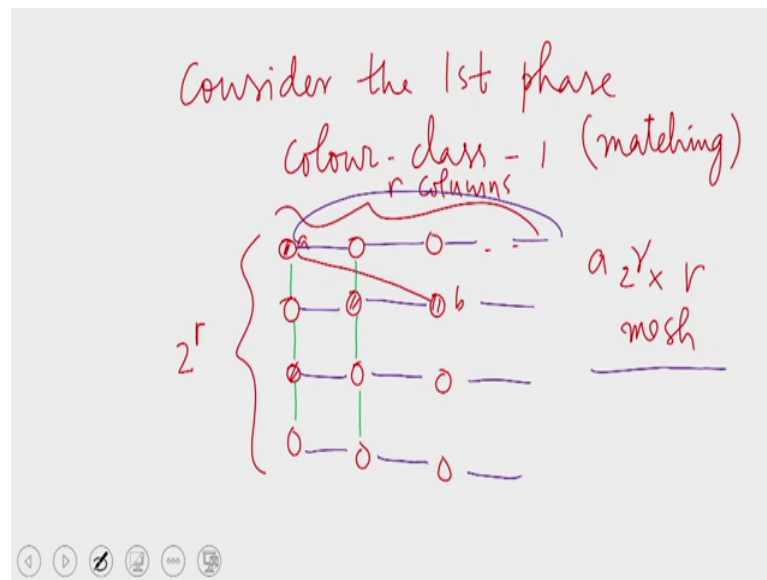 Consider the 1st phase
colour-class-1 (matching)
r columns
a
b
2^r
a 2^r x r
mesh